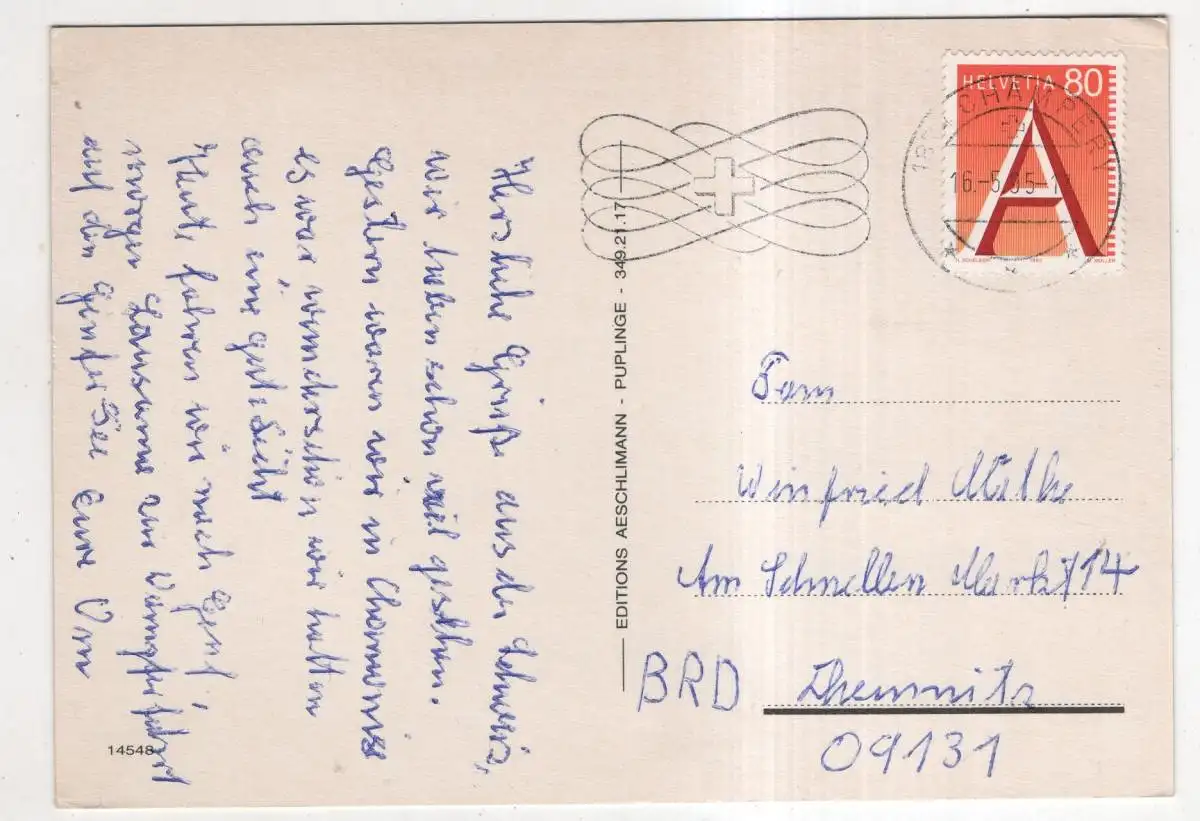 Herzliche Grüße aus der Schweiz,
wir haben schon viel gesehen.
Gestern waren wir in Chamonise
es war wunderschön wir hatten
auch eine gute Sicht
Heut, fahren wir nach Genf,
morgen Lausanne zur Dampferfahrt
auf den Genfer See Eure Omi
14548
EDITIONS AESCHLIMANN - PUPLINGE - 349.21.17
HELVETIA 80
A
CHAMPERY
16.-5.95-1
Fam
Winfried
Am Schnellen Markt 14
BRD Chemnitz
09131